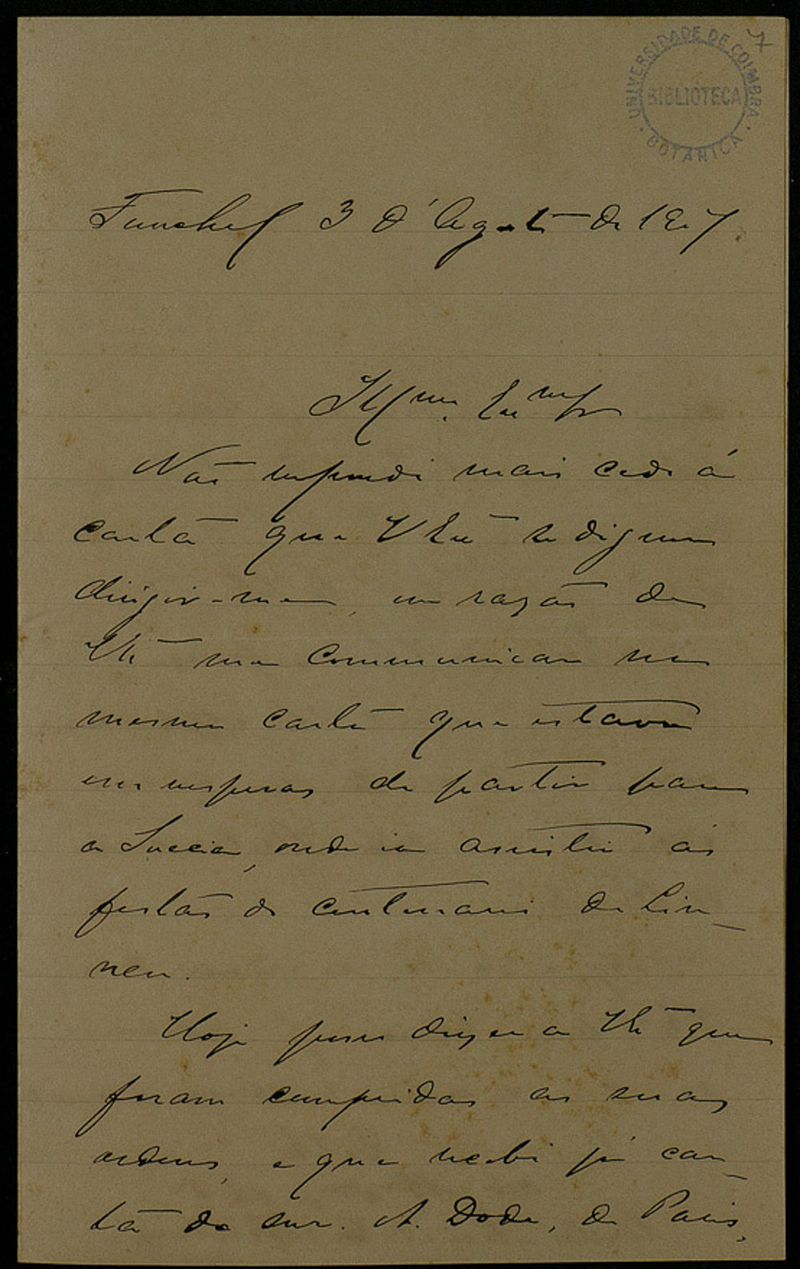 7
UNIVERSIDADE DE COIMBRA
BIBLIOTECA
BOTANICA
Funchal 3 d'Agosto de 1907
Illmo. Exmo Sr
Não respondi mais cedo á
carta que V Exa se dignou
dirigir-me, em razão de
V Exa me communicar na
mesma carta que estava
em vesperas de partir para
a Suecia, onde ia assistir ás
festas do centenario de Lin-
neu.
Hoje posso dizer a V Exa que
foram cumpridas as suas
ordens, e que recebi já car-
ta do snr. A. Dode, de Paris,